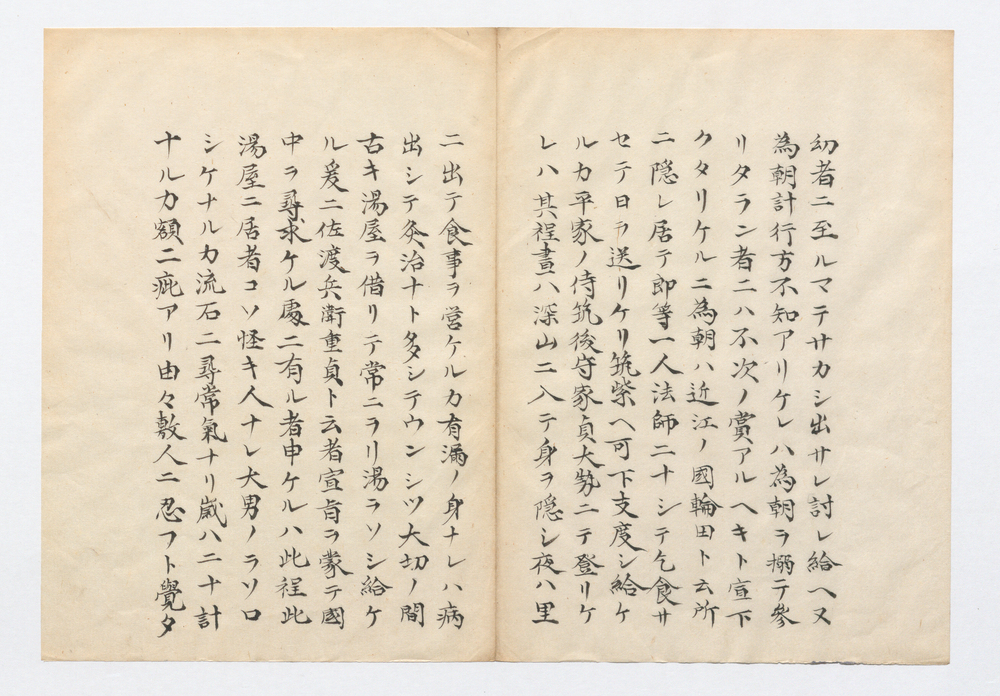 幼者ニ至ルマテサカシ出サレ討レ給ヘ又
為朝計行方不知アリケレハ為朝ヲ搦テ参
リタラン者ニハ不次ノ賞アルヘキト宣下
クタリケルニ為朝ハ近江ノ國輪田ト云所
ニ隠レ居テ郎等一人法師ニナシテ乞食サ
セテ日ヲ送リケリ筑紫ヘ可下支度シ給ケ
ルカ平家ノ侍筑後守家貞大勢ニテ登リケ
レハ其程晝ハ深山ニ入テ身ヲ隠シ夜ハ里
ニ出テ食事ヲ営ケルカ有漏ノ身ナレハ病
出シテ灸治ナト多シテウンシツ大切ノ間
古キ湯屋ヲ借リテ常ニヲリ湯ヲソシ給ケ
ル爰ニ佐渡兵衛重貞ト云者宣旨ヲ蒙テ國
中ヲ尋求ケル處ニ有ル者申ケルハ此程此
湯屋ニ居者コソ怪キ人ナレ大男ノヲソロ
シケナルカ流石ニ尋常氣ナリ歳ハ二十計
ナルカ額ニ疵アリ由々敷人ニ忍フト覺タ